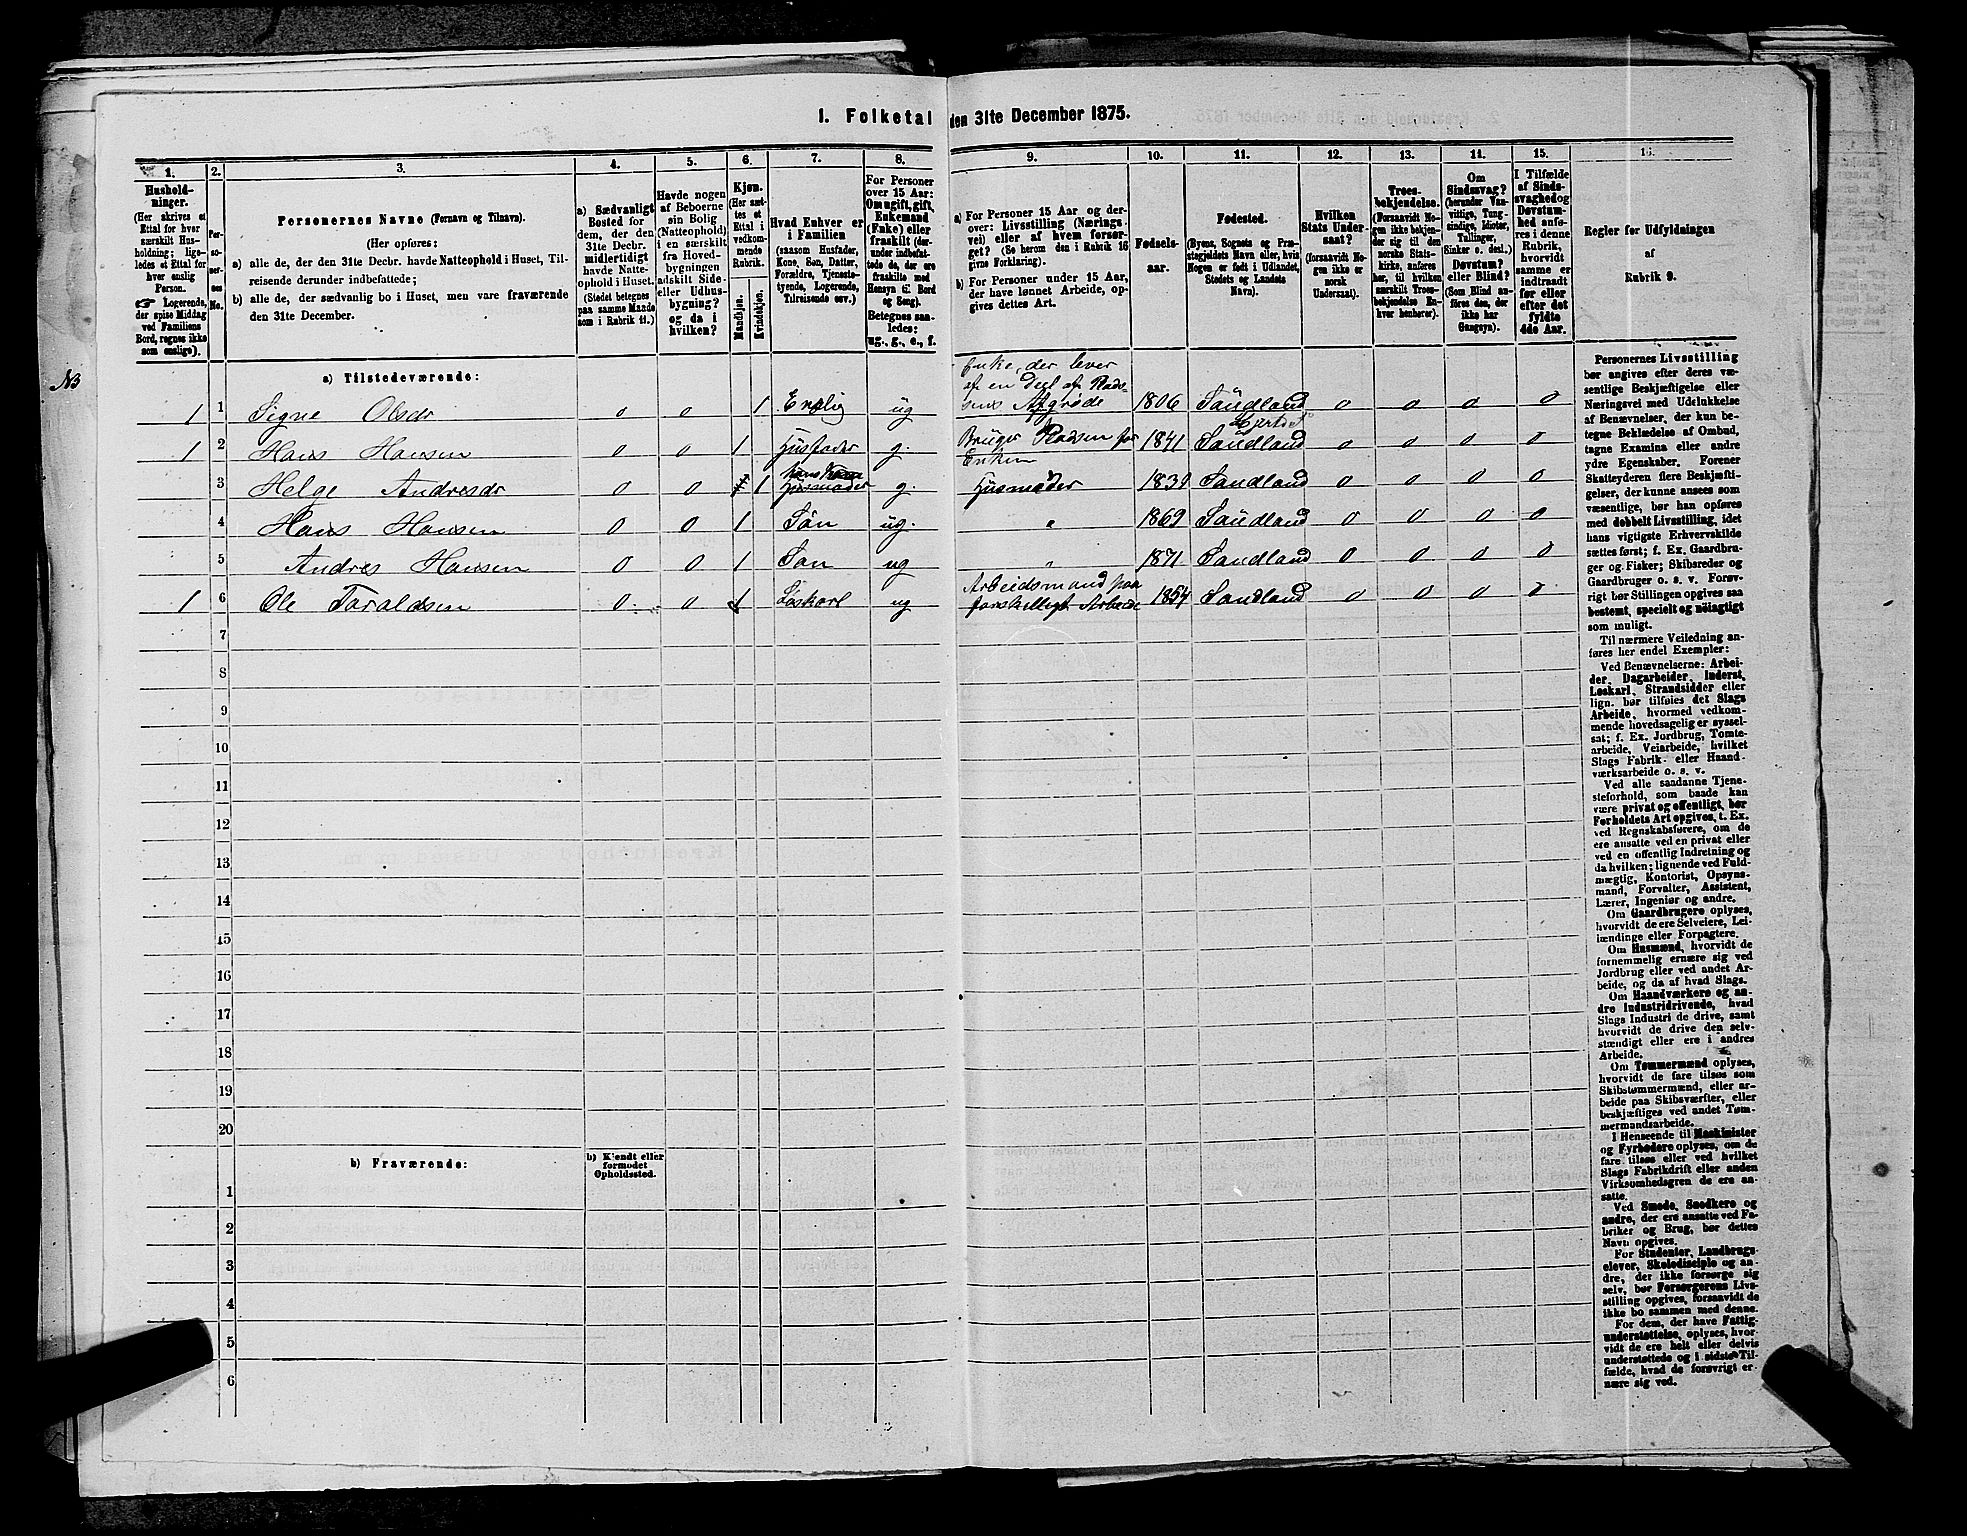 1. Folketal den 31te December 1875.
1.
Hushold-
ninger.
(Her skrives et
Ettal for hver
særskilt Hus-
holdning; lige-
ledes et Ettal for
hver enslig
Person.
☞ Logerende,
der spise Middag
ved Familiens
Bord, regnes ikke
som enslige).
2.
Per-
so-
ner-
nes
No.
3.
Personernes Navne (Fornavn og Tilnavn).
(Her opføres:
a) alle de, der den 31te Decbr. havde Natteophold i Huset, Til-
reisende derunder indbefattede;
b) alle de, der sædvanlig bo i Huset, men vare fraværende
den 31te December.
4.
a) Sædvanligt
Bosted for
dem, der den
31te Decbr.
midlertidigt
havde Natte-
ophold i Huset.
(Stedet betegnes
paa samme Maade
som i Rubrik 11.)
5.
Havde nogen
af Beboerne
sin Bolig
(Natteophold)
i en særskilt
fra Hoved-
bygningen
adskilt Side-
eller Udhus-
bygning?
og da i
hvilken?
6.
Kjøn.
(Her sæt-
tes et
Ettal i
vedkom-
mende
Rubrik.
Mandkjøn.
Kvindekjøn.
7.
Hvad Enhver er
i Familien
(saasom Husfader,
Kone, Søn, Datter,
Forældre, Tjeneste-
tyende, Logerende,
Tilreisende osv.)
8.
For Personer
over 15 Aar:
Om ugift, gift,
Enkemand
(Enke) eller
fraskilt (der-
under indbefat-
tede de, der ere
fraskilte med
Hensyn til Bord
og Seng).
Betegnes saa-
ledes:
ug., g., e., f.
9.
a) For Personer 15 Aar og der-
over: Livsstilling (Nærings-
vei) eller af hvem forsør-
get? (Se herom den i Rubrik 16
givne Forklaring).
b) For Personer under 15 Aar,
der have lønnet Arbeide, op-
gives dettes Art.
10.
Fødsels-
aar.
11.
Fødested.
(Byens, Sognets og Præ-
stegjeldets Navn eller, hvis
Nogen er født i Udlandet,
Stedets og Landets
Navn).
12.
Hvilken
Stats Under-
saat?
(forsaavidt No-
gen ikke er
norsk
Undersaat).
13.
Troes-
bekjendelse.
(Forsaavidt No-
gen ikke bekjen-
der sig til den
norske Stats-
kirke, anføres
her, til hvilken
særskilt Troes-
bekjendelse En-
hver henhører).
14.
Om
Sindssvag?
(herunder Van-
vittige, Tung-
sindige, Idioter,
Tullinger,
Sinker o. desl.)
Døvstum?
eller Blind?
(Som Blind an-
føres den, der
ikke har
Gangsyn).
15.
I Tilfælde
af Sinds-
svaghed og
Døvstum-
hed anfø-
res i denne
Rubrik,
hvorvidt
samme er
indtraadt
før eller
efter det
fyldte
4de Aar.
16.
Regler for Udfyldningen
af
Rubrik 9.
N3
a) Tilstedeværende:
Enke, der lever
af en Deel af Plads-
1 1 Signe Olsdr 0 0 1 Enslig ug sens Afgrøde 1806 Saudland 0 0 0 0
Hjertdal
1 2 Hans Hansen 0 0 1 Husfader g. Bruger Pladsen for Enken 1841 Saudland 0 0 0 0
3 Helge Andresdr 0 0 1 Husmoder hans Kone g. Husmoder 1839 Saudland 0 0 0 0
4 Hans Hansen 0 0 1 Søn ug. " 1869 Saudland 0 0 0 0
5 Andres Hansen 0 0 1 Søn ug " 1871 Saudland 0 0 0 0
Arbeidsmand paa
1 6 Ole Taraldsen 0 0 1 Løskarl ug forskelligt Arbeide 1854 Saudland 0 0 0 0
7
8
9
10
11
12
13
14
15
16
17
18
19
20
b) Fraværende:
b) Kjendt eller
formodet
Opholdssted.
1
2
3
4
5
6
Personernes Livsstilling
bør angives efter deres væ-
sentlige Beskjæftigelse eller
Næringsvei med Udelukkelse
af Benævnelser, der kun be-
tegne Beklædelse af Ombud,
tagne Examina eller andre
ydre Egenskaber. Forener
Skatteyderen flere Beskjæfti-
gelser, der kunne ansees som
væsentlige, bør han opføres
med dobbelt Livsstilling, idet
hans vigtigste Erhvervskilde
sættes først; f. Ex. Gaardbru-
ger og Fisker; Skibsreder og
Gaardbruger o. s. v. Forøv-
rigt bør Stillingen opgives saa
bestemt, specielt og nøiagtigt
som muligt.
Til nærmere Veiledning an-
føres her endel Exempler:
Ved Benævnelserne: Arbei-
der, Dagarbeider, Inderst,
Løskarl, Strandsidder eller
lign. bør tilføies det Slags
Arbeide, hvormed vedkom-
mende hovedsagelig er syssel-
sat; f. Ex. Jordbrug, Tomte-
arbeide, Veiarbeide, hvilket
Slags Fabrik- eller Haand-
værksarbeide o. s. v.
Ved alle saadanne Tjene-
steforhold, som baade kan
være privat og offentligt, bør
Forholdets Art opgives, t. Ex.
ved Regnskabsførere, om de
ere ansatte ved en privat eller
ved en offentlig Indretning og
da hvilken; lignende ved Fuld-
mægtig, Kontorist, Opsyns-
mand, Forvalter, Assistent,
Lærer, Ingeniør og andre.
Om Gaardbrugere oplyses,
hvorvidt de ere Selveiere, Lei-
lændinge eller Forpagtere.
Om Husmænd, hvorvidt de
fornemmelig ernære sig ved
Jordbrug eller ved andet Ar-
beide, og da af hvad Slags.
Om Haandværkere og an-
dre Industridrivende, hvad
Slags Industri de drive, samt
hvorvidt de drive den selv-
stændigt eller ere i andres
Arbeide.
Om Tømmermænd oplyses,
hvorvidt de fare tilsøs som
Skibstømmermænd, eller ar-
beide paa Skibsværfter, eller
beskjæftiges ved andet Tøm-
mermandsarbeide.
I Henseende til Maskinister
og Fyrbødere oplyses, om de
fare tilsøs eller ved hvilket
Slags Fabrikdrift eller anden
Virksomhedsgren de ere an-
satte.
Ved Smede, Snedkere og
andre, der ere ansatte ved Fa-
briker og Brug, bør dettes
Navn opgives.
For Studenter, Landbrugs-
elever, Skoledisciple og an-
dre, der ikke forsørge sig
selv, bør Forsørgerens Livs-
stilling opgives, forsaavidt de
ikke bo sammen med denne.
For dem, der have Fattig-
understøttelse, oplyses, hvor-
vidt de ere helt eller delvis
understøttede og i sidste Til-
fælde, hvad de forøvrigt er-
nære sig ved.